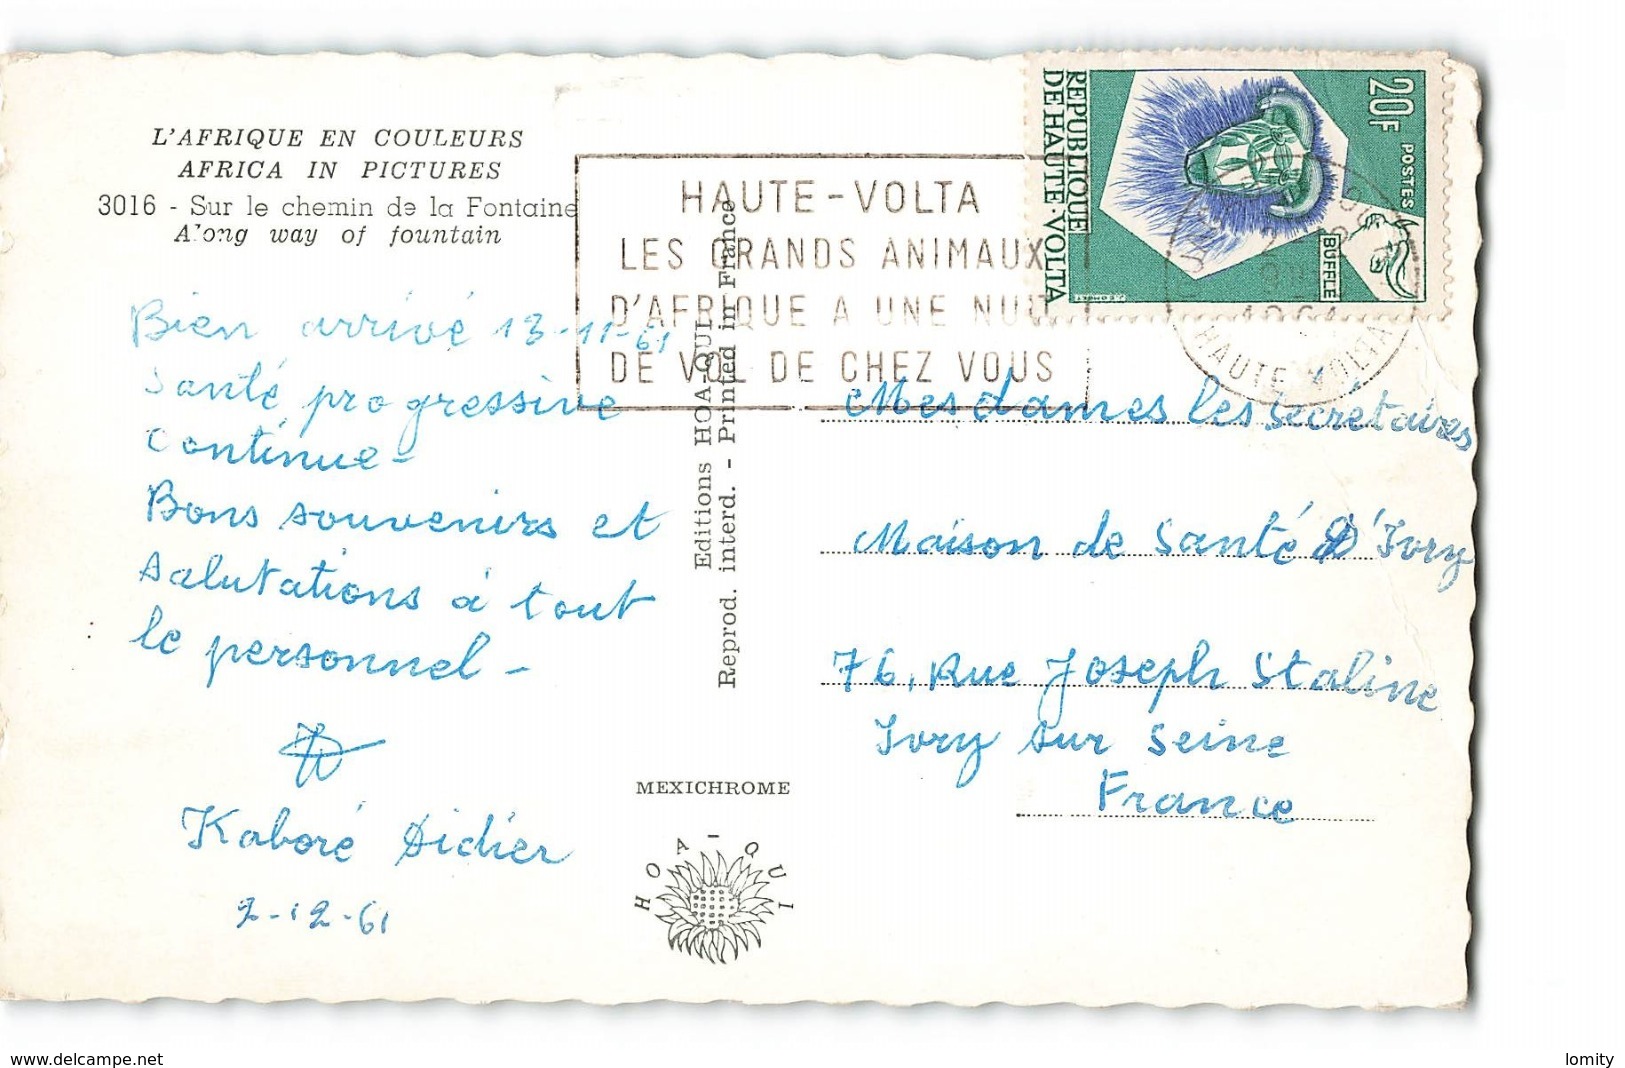 L'AFRIQUE EN COULEURS
AFRICA IN PICTURES
3016 - Sur le chemin de la Fontaine
Along way of fountain
Bien arrivé 13-11-61
Santé progressive
Continue -
Bons souvenirs et
Salutations à tout
le personnel -
Kaboré Didier
2-12-61
HAUTE-VOLTA
LES GRANDS ANIMAUX
D'AFRIQUE A UNE NUIT
DE VOL DE CHEZ VOUS
Editions HOA-QUI
Reprod. interd. - Printed in France
MEXICHROME
HOA-QUI
REPUBLIQUE
DE HAUTE-VOLTA
20F
POSTES
BUFFLE
HAUTE VOLTA
Mesdames les Secrétaires
Maison de Santé D'Ivry
76, Rue Joseph Staline
Ivry sur Seine
France
www.delcampe.net
lomity